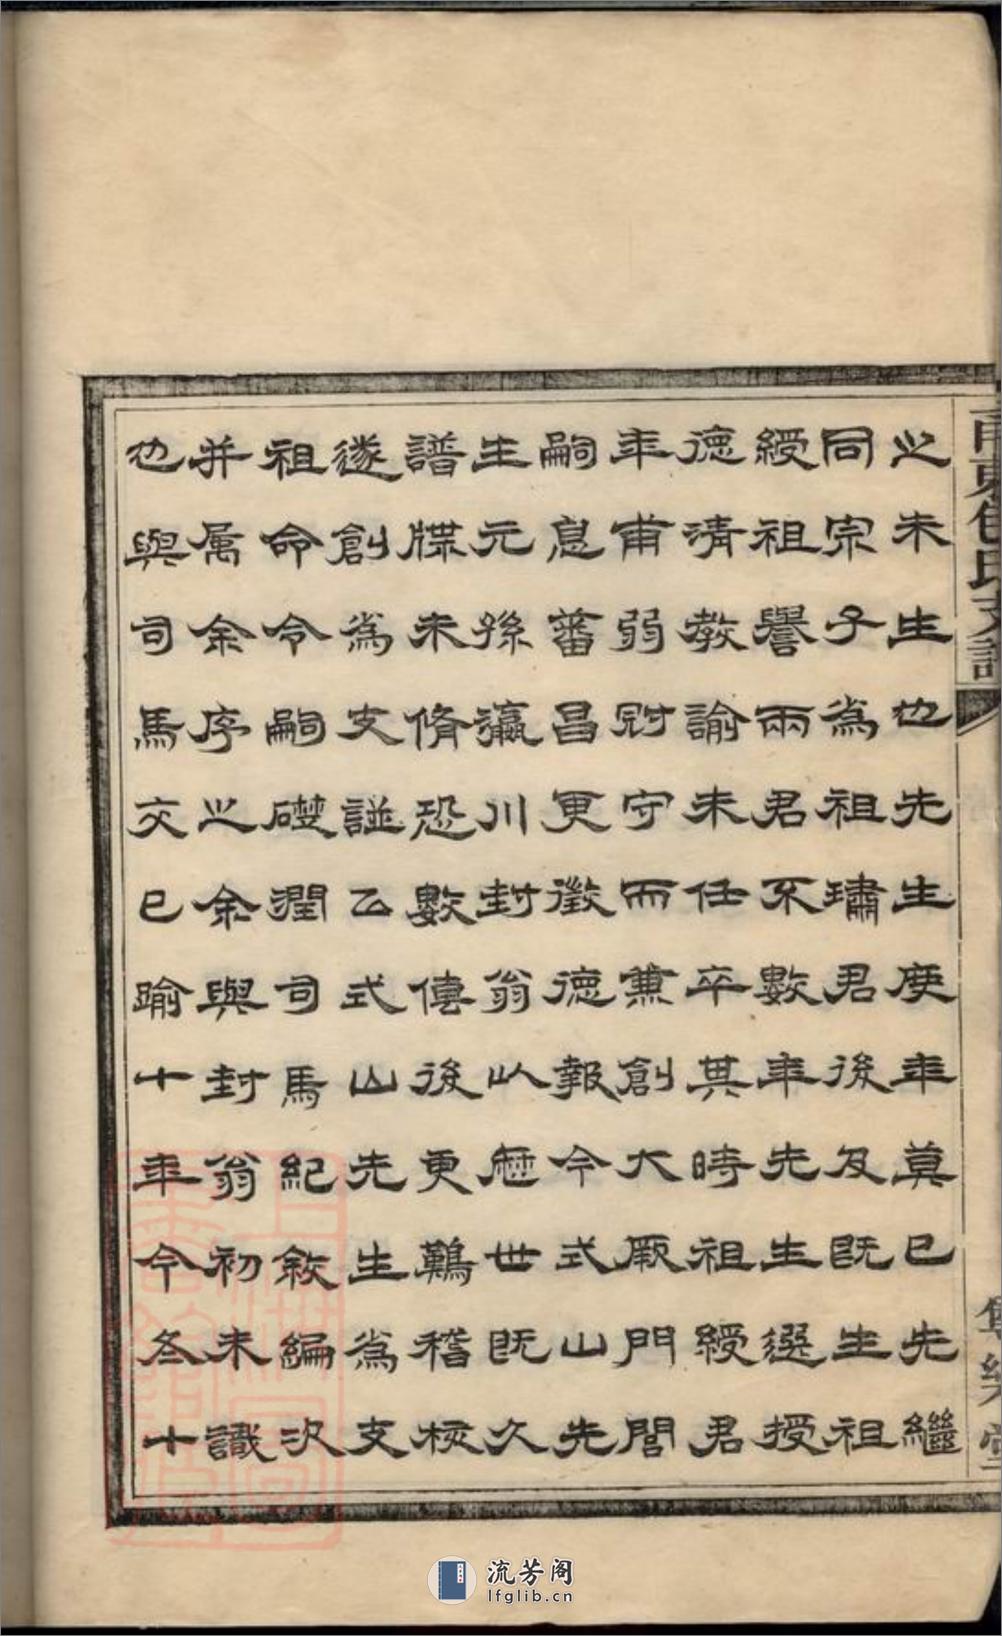 甬東包氏支譜
之未生也先生庚年莫已先繼
同宗子爲祖璛君後及旣生祖
綬祖譽兩君不數年先生選授
德清教諭未任卒其時祖綬君
年甫弱冠守而兼創大厥門閭
嗣息蕃昌更徵德報今式山先
生元孫瀛川封翁以歷世旣久
譜牒未脩恐數傳後更難稽核
遂創爲支譜乙式山先生爲支
祖命令嗣礎潤司馬紀敘編次
并属余序之余與封翁初未識
也與司馬交已踰十年今冬十
流芳阁
lfglib.cn